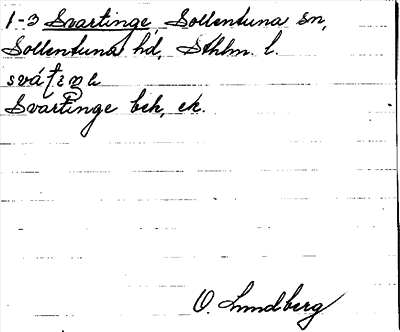 1-3 Svartinge, Sollentuna sn,
Sollentuna hd, Sthlm l.
Svartinge bch, ek.
O. Lundberg